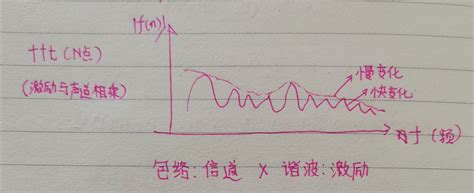 |f(n)|
fft(N点)
(激励与声道相乘)
慢变化
快变化
f(频)
包络:信道 × 谐波:激励